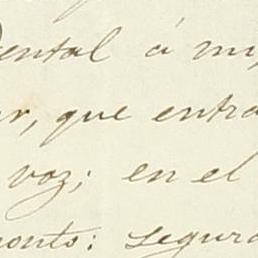 ental á mi
r, que entra
voz; en el
onto: segura